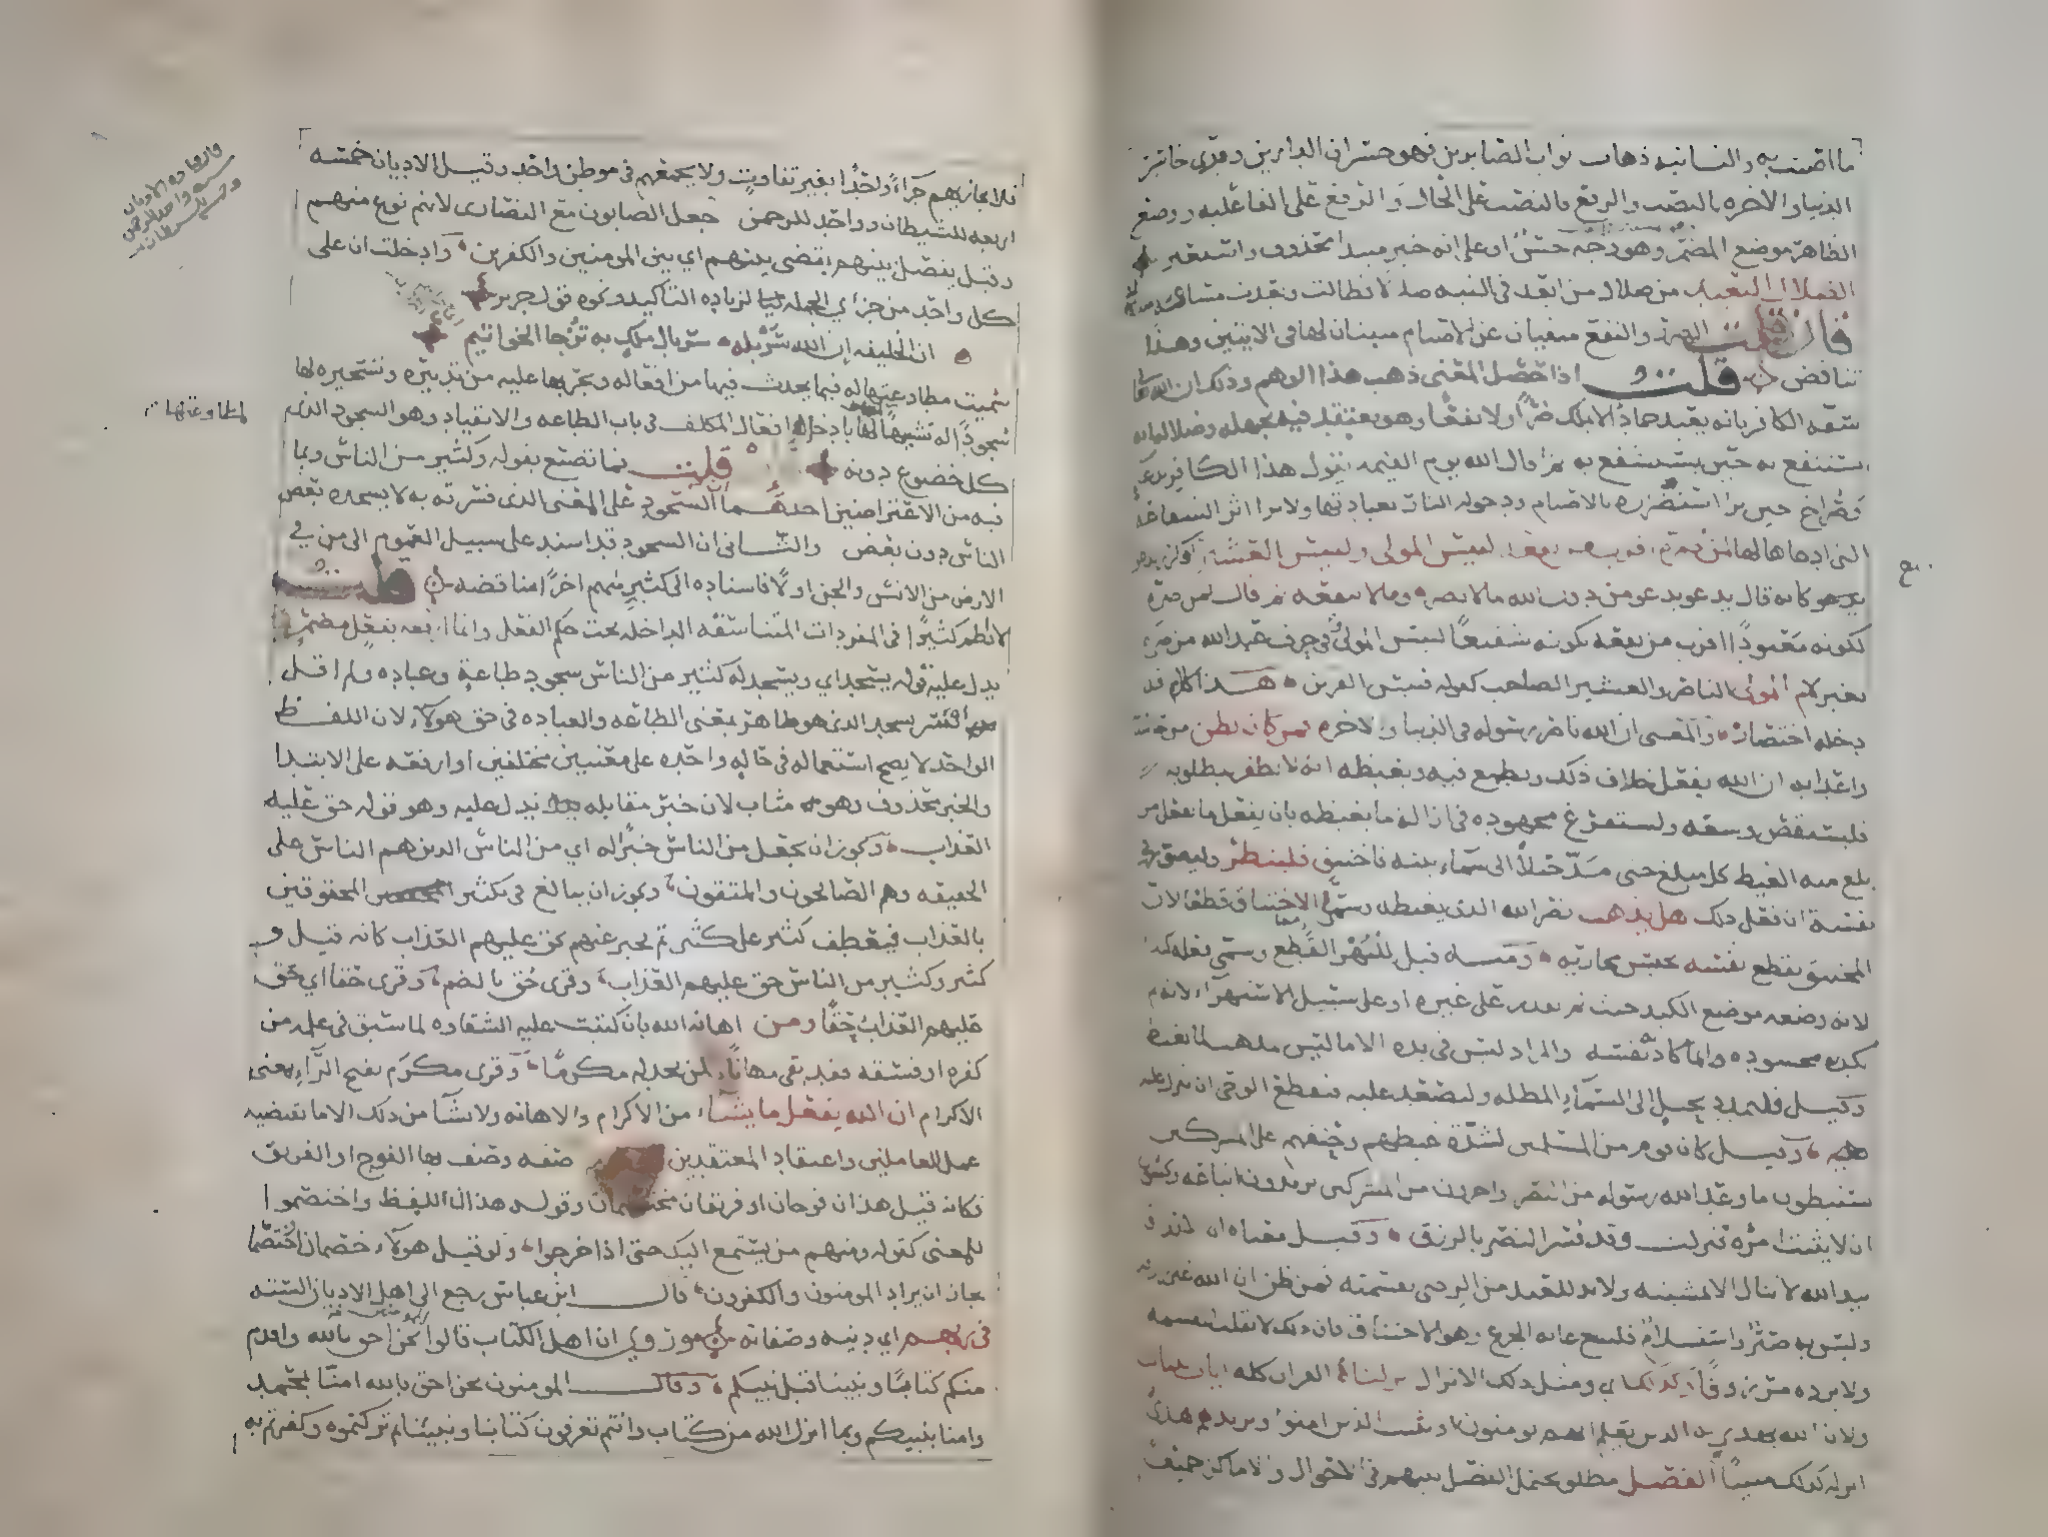 ما اصيب به والثانيه ذهاب ثواب الصابرين فهو خسران الدارين وقرى خاسر
الدنيا والاخره بالنصب والرفع فالنصب على الحال والرفع على الفاعليه ووضع
الظاهر موضع المضمر وهو وجه حسن او على انه خبر مبتدا محذوف واستعير
الضلال البعيد من ضلال من ابعد في التيه ضالا فطالت وبعدت مسافه
فان قلت الضرر والنفع منفيان عن الاصنام مثبتان لها في الايتين وهذا
تناقض قلت اذا حصل المعنى ذهب هذا الوهم وذلك ان الله
سفه الكافر بانه يعبد جمادا لا يملك ضرا ولا نفعا وهو يعتقد فيه بجهله وضلاله انه
يستنفع به حين يستشفع به ثم قال الله يوم القيمه يقول هذا الكافر بدعا
وصراخ حين يرا استضراره بالاصنام ودخوله النار بعبادتها ولا يرا اثر الشفاعه
التي ادعاها لها لمن ضره اقرب من نفعه لبيس المولى ولبيس العشير او كرر يدعو
كانه قال يدعو يدعو من دون الله ما لا يضره وما لا ينفعه ثم قال لمن ضره
لكونه معبودا اقرب من نفعه بكونه شفيعا لبيس المولى وفي حرف عبد الله من ضره
بغير لام المولى الناصر والعشير الصاحب كقوله فبيس القرين هذا كلام قد
دخله اختصار والمعنى ان الله ناصر رسوله في الدنيا والاخره فمن كان يظن من
واعدايه ان الله يفعل خلاف ذلك ويطمع فيه ويغيظه انه لا يظفر بمطلوبه
فليستقص وسعه وليستفرغ مجهوده في ازاله ما يغيظه بان يفعل ما يفعل من
بلغ منه الغيظ كل مبلغ حتى مد حبلا الى سماء بيته فاختنق فلينظر وليصور في
نفسه ان فعل ذلك هل يذهب نصر الله الذي يغيظه وسمي الاختناق قطعا لان
المختنق يقطع نفسه بحبس مجاريه ومنه قيل للبهر القطع وسمي فعله كيدا
لانه وضعه موضع الكيد حيث لم يقدر على غيره او على سبيل الاستهزاء لانه لم
يكد به محسوده وانما كاد نفسه والمراد ليس في يده الا ما ليس مذهبا لما يغيظه
وقيل فليمدد بحبل الى السماء المظله وليصعد عليه فيقطع الوحي ان ينزل عليه
وقيل كان قوم من المسلمين لشدة غيظهم وحنقهم على المشركين
يستبطون ما وعد الله رسوله من النصر واخرون من المشركين يريدون اتباعه ويخشون
ان لا يثبت امره فنزلت وقد فسر النصر بالرزق وقيل معناه ان الارزاق
بيد الله لا تنال الا بمشيته ولا بد للعبد من الرضى بقسمته فمن ظن ان الله غير رازقه
وليس به صبر واستسلام فليبلغ غايه الجزع وهو الاختناق فان ذلك لا يقلب القسمه
ولا يرده مرزوقا وكذلك اي ومثل ذلك الانزال انزلناه القران كله ايات بينات
ولان الله يهدي به الذين يعلم انهم يومنون او يثبت الذين امنوا ويزيدهم هدى
انزله كذلك مبينا الفصل مطلق يحتمل الفصل بينهم في الاحوال والاماكن جميعا
فلا يجازيهم جزاء واحدا بغير تفاوت ولا يجمعهم في موطن واحد وقيل الاديان خمسه
اربعه للشيطان وواحد للرحمن جعل الصابون مع النصارى لانهم نوع منهم
وقيل يفصل بينهم يقضي بينهم اي بين المومنين والكفرين وادخلت ان على
كل واحد من جزاي الجمله لزياده التاكيد ونحوه قول جرير
ان الخليفه ان الله سربله سربال ملك به ترجا الخواتيم
سميت مطاوعتها له فيما يحدث فيها من افعاله ويجريها عليه من تدبيره وتسخيره لها
سجودا له تشبيها لها بادخال افعال المكلف في باب الطاعه والانقياد وهو السجود الذي
كل خضوع دونه فان قلت فما تصنع بقوله وكثير من الناس وبما
فيه من الاعتراضين احدهما السجود على المعنى الذي فسرته به لا يسجده بعض
الناس دون بعض والثاني ان السجود قد اسند على سبيل العموم الى من في
الارض من الانس والجن اولا فاسناده الى كثير منهم اخرا مناقضه قلت
لا انظم كثيرا في المفردات المتناسقه الداخله تحت حكم الفعل وانما ارفعه بفعل مضمر
يدل عليه قوله يسجد اي ويسجد له كثير من الناس سجود طاعة وعباده ولم اقل
افسر يسجد الذي هو ظاهر بمعنى الطاعه والعباده في حق هولاء لان اللفظ
الواحد لا يصح استعماله في حاله واحده على معنيين مختلفين او ارفعه على الابتدا
والخبر محذوف وهو مثاب لان خبر مقابله يدل عليه وهو قوله حق عليه
العذاب ويجوز ان يجعل من الناس خبرا له اي من الناس الذين هم الناس على
الحقيقه وهم الصالحون والمتقون ويجوز ان يبالغ في تكثير المحقوقين
بالعذاب فيعطف كثير على كثير ثم يخبر عنهم بحق عليهم العذاب كانه قيل و
كثير وكثير من الناس حق عليهم العذاب وقرى حُق بالضم وقرى حقا اي حق
عليهم العذاب حقا ومن اهانه الله بان كتبت عليه الشقاوه لما سبق في علمه من
كفره او فسقه فقد بقي مهانا لمن يجد له مكرما وقرى مكرَم بفتح الراء بمعنى
الاكرام ان الله يفعل ما يشاء من الاكرام والاهانه ولا يشا من ذلك الا ما يقتضيه
عمل العاملين واعتقاد المعتقدين صفه وصف بها الفوج او الفريق
فكانه قيل هذان فوجان او فريقان مختصمان وقوله هذان اللفظ واختصموا
للمعنى كقوله ومنهم من يستمع اليك حتى اذا خرجوا ولو قيل هولاء خصمان اختصما
جاز ان يراد المومنون والكفرون قال ابن عباس رجع الى اهل الاديان السته
في ربهم اي دينه وصفاته وروي ان اهل الكتاب قالوا نحن احق بالله واقدم
منكم كتابا ونبينا قبل نبيكم وقال المومنون نحن احق بالله امنا بمحمد
وامنا بنبيكم وبما انزل الله من كتاب وانتم تعرفون كتابنا ونبينا ثم تركتموه وكفرتم به
لمطاوعتها